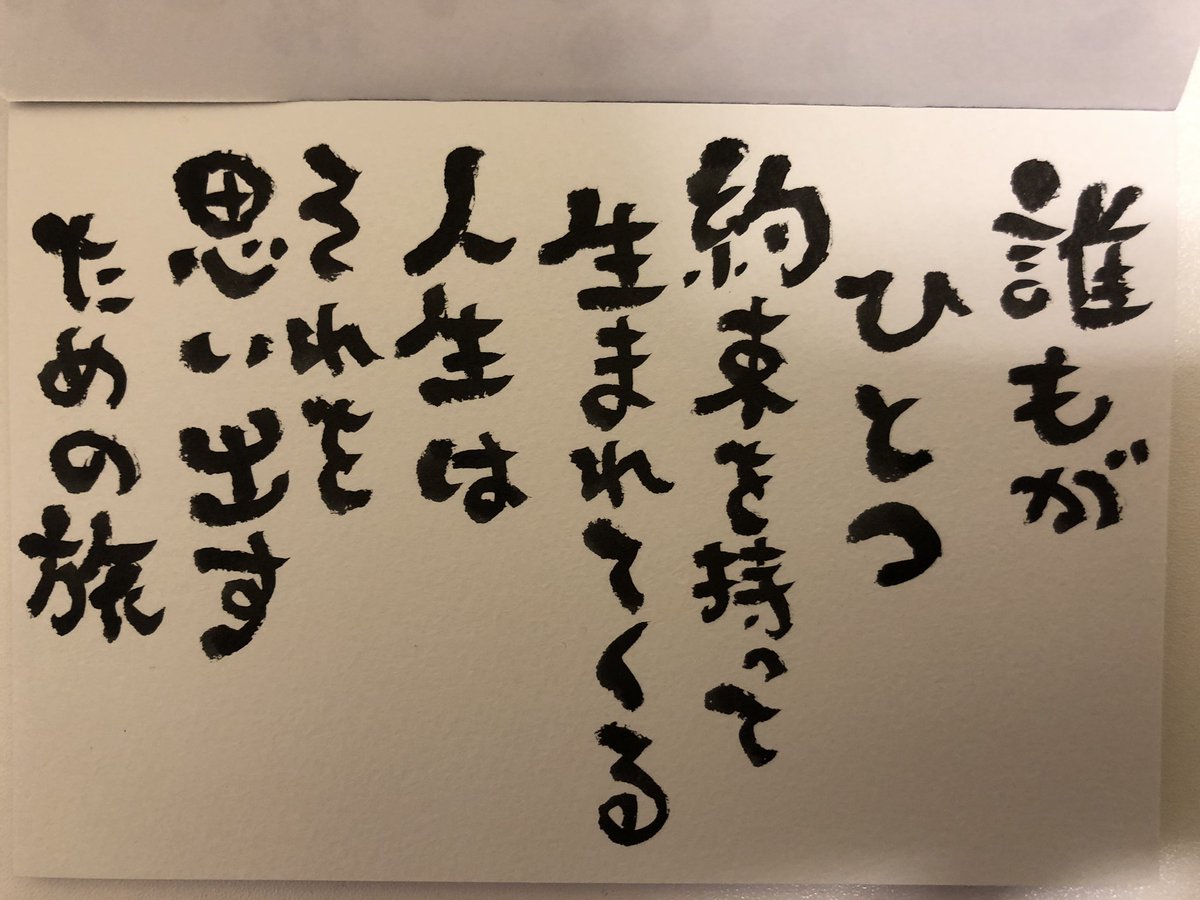 誰もが
ひとつ
約束を持って
生まれてくる
人生は
それを
思い出す
ための旅